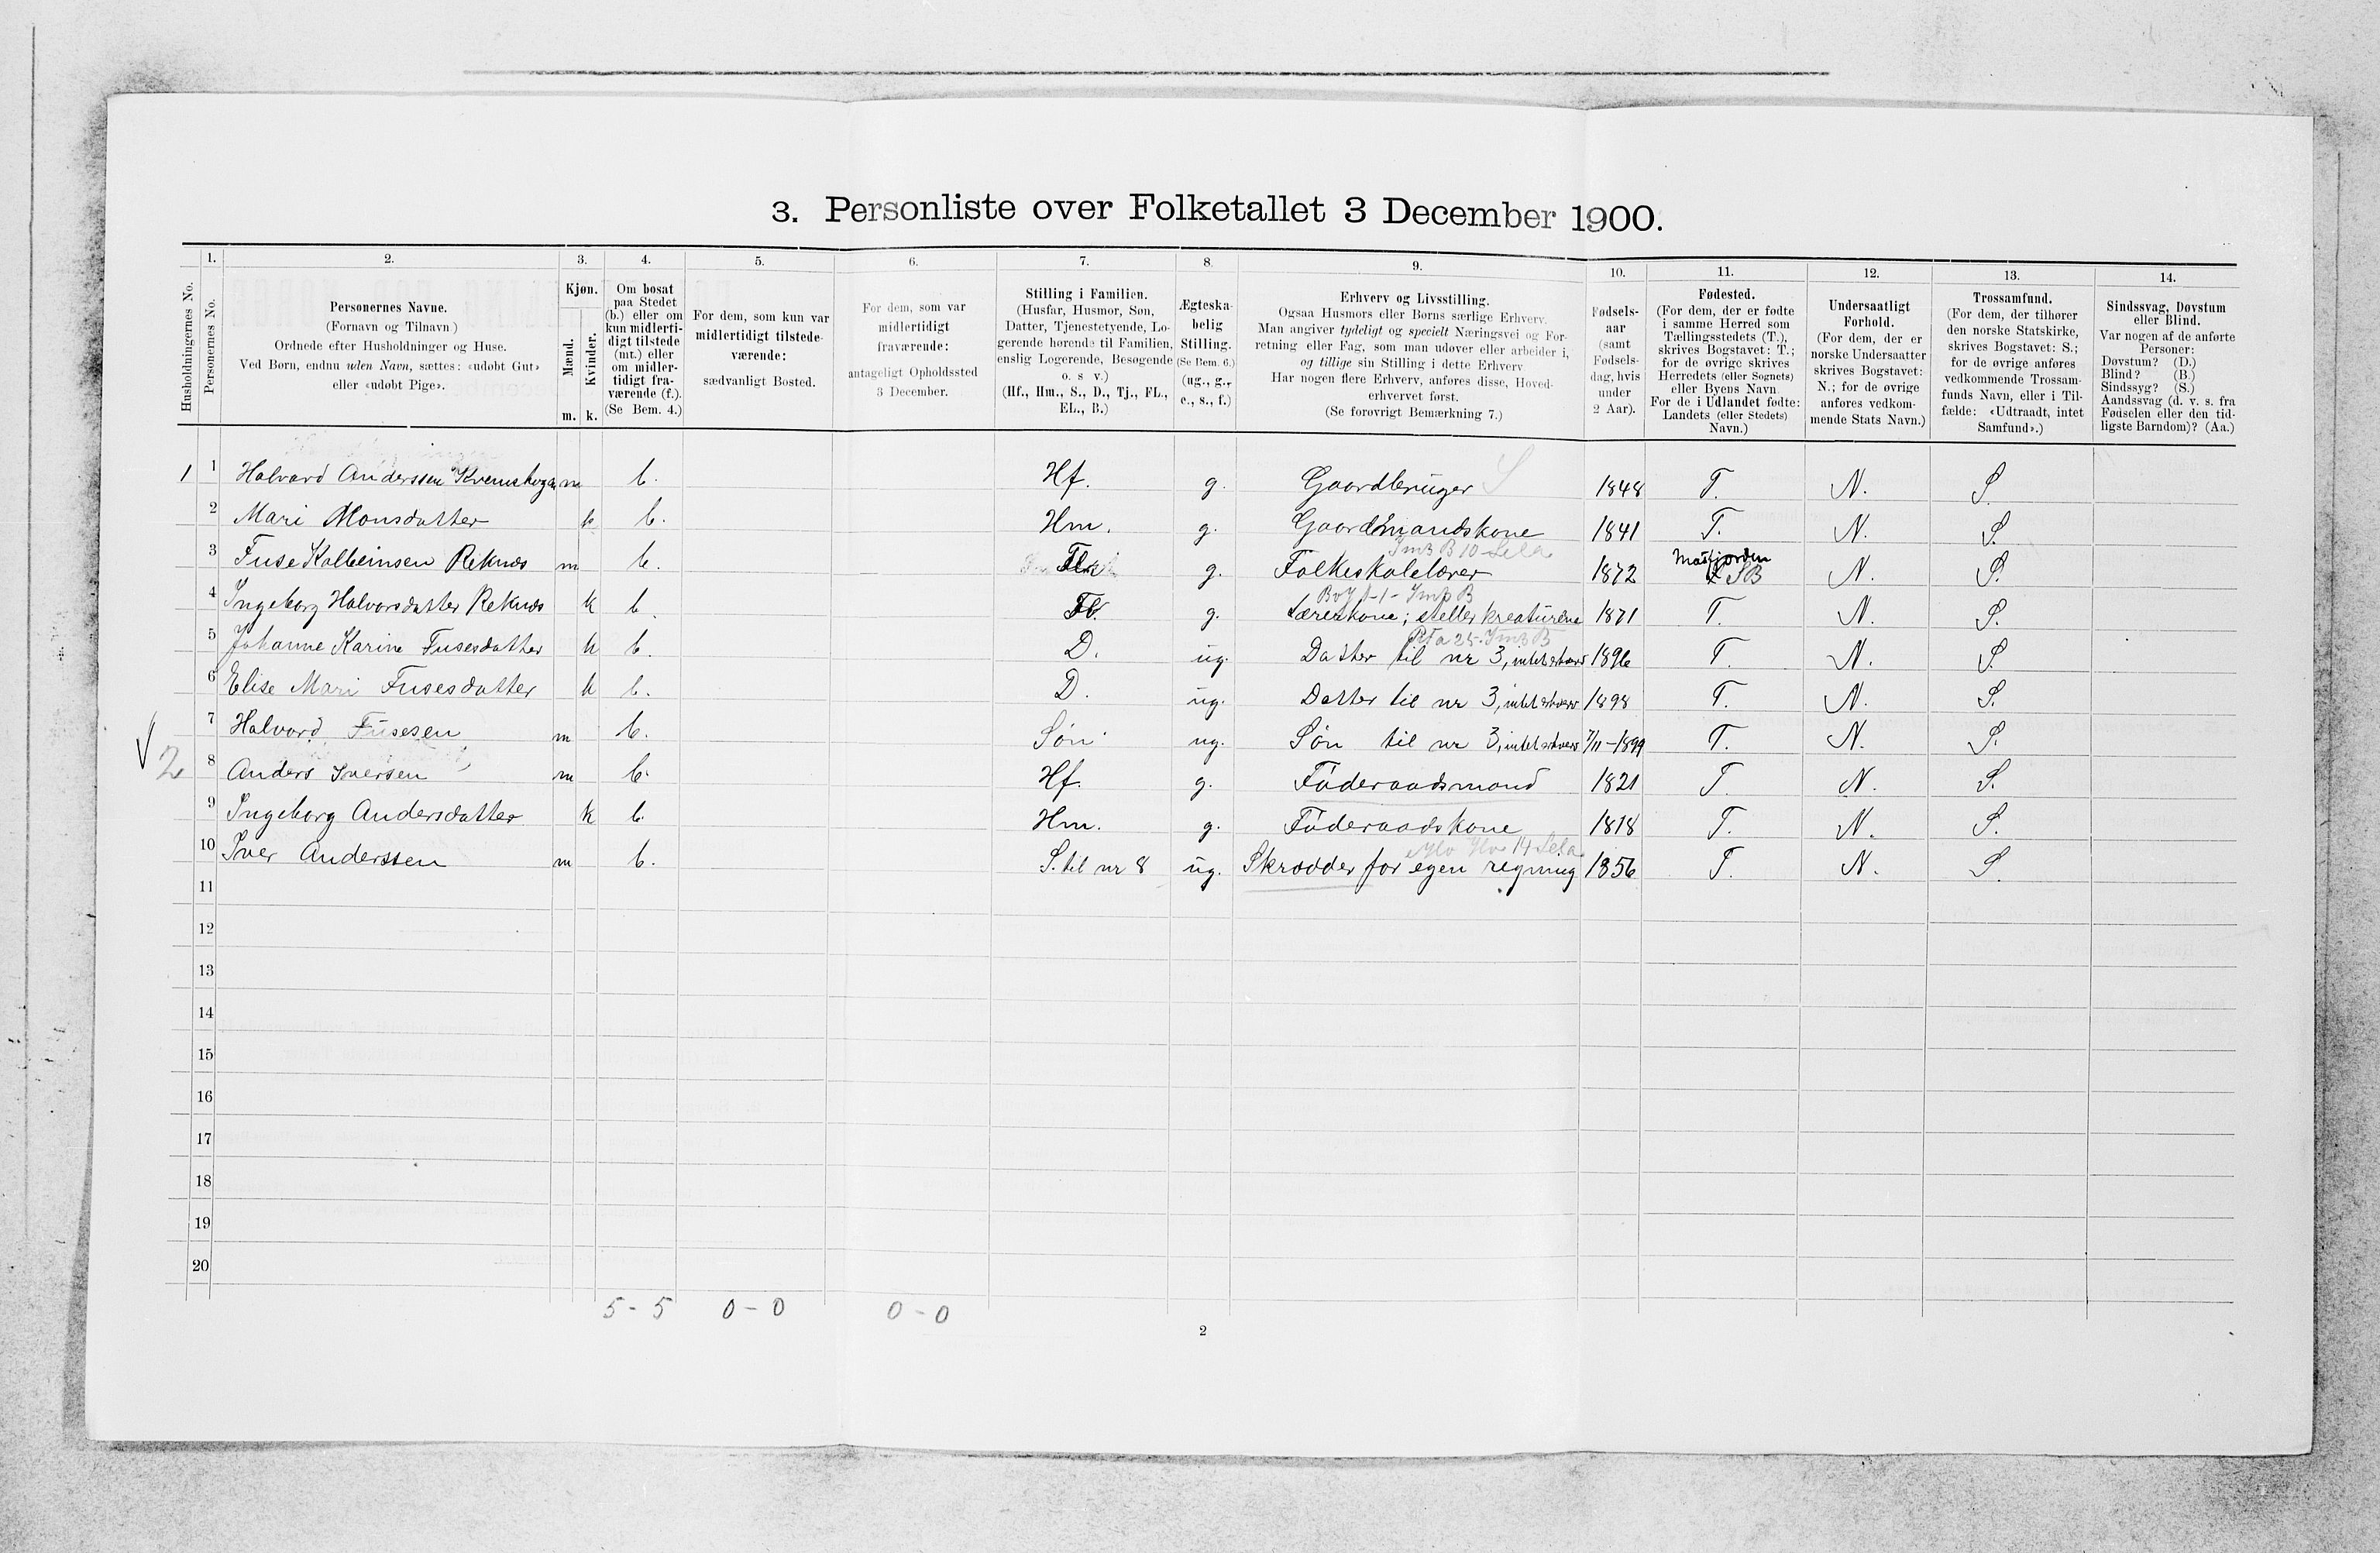 3. Personliste over Folketallet 3 December 1900.
Husholdningernes No.
1. Personernes No.
2. Personernes Navne.
(Fornavn og Tilnavn)
Ordnede efter Husholdninger og Huse.
Ved Børn, endnu uden Navn, sættes: «udøbt Gut»
eller «udøbt Pige».
3. Kjøn.
Mænd. m.
Kvinder. k.
4. Om bosat
paa Stedet
(b.) eller om
kun midlerti-
digt tilstede
(mt.) eller
om midler-
tidigt fra-
værende (f.).
(Se Bem. 4.)
5. For dem, som kun var
midlertidigt tilstede-
værende:
sædvanligt Bosted.
6. For dem, som var
midlertidigt
fraværende:
antageligt Opholdssted
3 December.
7. Stilling i Familien.
(Husfar, Husmor, Søn,
Datter, Tjenestetyende, Lo-
gerende hørende til Familien,
enslig Logerende, Besøgende
o. s v.)
(Hf., Hm., S., D., Tj., FL.,
EL., B.)
8. Ægteska-
belig
Stilling.
(Se Bem. 6.)
(ug., g.,
e., s., f.)
9. Erhverv og Livsstilling.
Ogsaa Husmors eller Børns særlige Erhverv.
Man angiver tydeligt og specielt Næringsvei og For-
retning eller Fag, som man udøver eller arbeider i,
og tillige sin Stilling i dette Erhverv.
Har nogen flere Erhverv, anføres disse, Hoved-
erhvervet først.
(Se forøvrigt Bemærkning 7.)
10. Fødsels-
aar
(samt
Fødsels-
dag, hvis
under
2 Aar).
11. Fødested.
(For dem, der er fødte
i samme Herred som
Tællingsstedets (T.),
skrives Bogstavet: T.;
for de øvrige skrives
Herredets (eller Sognets)
eller Byens Navn
For de i Udlandet fødte:
Landets (eller Stedets)
Navn.)
12. Undersaatligt
Forhold.
(For dem, der er
norske Undersaatter
skrives Bogstavet:
N.; for de øvrige
anføres vedkom-
mende Stats Navn.)
13. Trossamfund.
(For dem, der tilhører
den norske Statskirke,
skrives Bogstavet: S.;
for de øvrige anføres
vedkommende Trossam-
funds Navn, eller i Til-
fælde: «Udtraadt, intet
Samfund».)
14. Sindssvag, Døvstum
eller Blind.
Var nogen af de anførte
Personer:
Døvstum? (D.)
Blind? (B.)
Sindssyg? (S.)
Aandssvag (d. v. s. fra
Fødselen eller den tid-
ligste Barndom)? (Aa.)
1 1 Halvard Anderssen Kvemshagen m b. Hf. g. Gaardbruger S 1848 T. N. S.
2 Mari Monsdatter k b. Hm. g. Gaardmandskone 1841 T. N. S.
3 Fuse Kolbeinsen Reknes m b. g. Folkeskolelærer 1872 Masfjorden SB N. S.
4 Ingeborg Halvorsdatter Reknes k b. g. Lærerkone; steller kreaturene 1871 T. N. S.
5 Johanne Karine Fusesdatter k b. D. ug. Datter til nr 3, intet erhverv 1896 T. N. S.
6 Elise Mari Fusesdatter k b. D. ug. Datter til nr 3, intet erhverv 1898 T. N. S.
7 Halvord Fusesen m b. Søn ug. Søn til nr 3, intet erhverv 7/11-1899 T. N. S.
2 8 Anders Iversen m b. Hf. g. Føderaadsmand 1821 T. N. S.
9 Ingeborg Andersdatter k b. Hm. g. Føderaadskone 1818 T. N. S.
10 Iver Anderssen m b. S. til nr 8 ug. Skrædder for egen regning 1856 T. N. S.
11
12
13
14
15
16
17
18
19
20
5 - 5 0 - 0 0 - 0
2